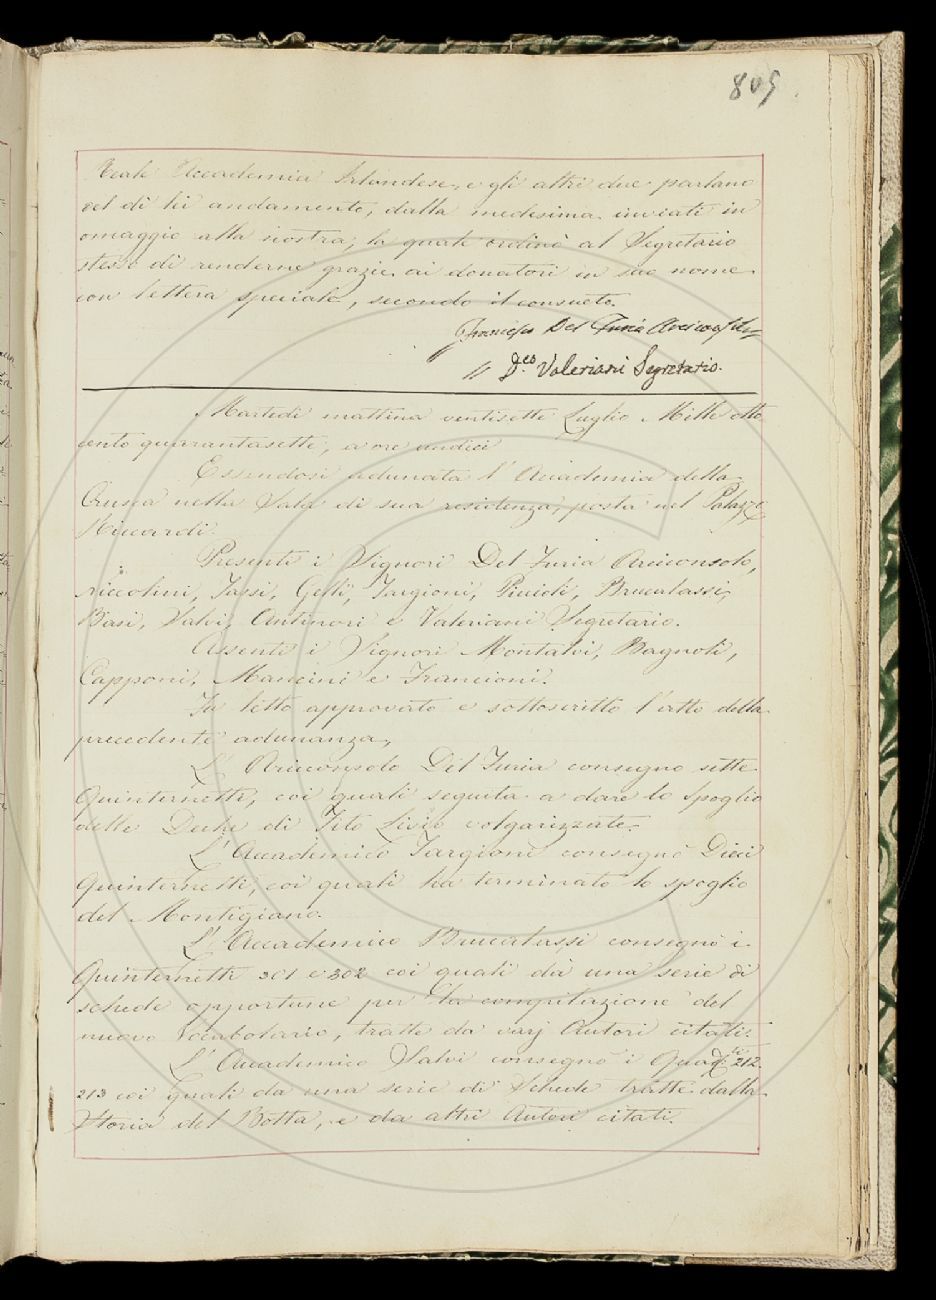 809
Reale Accademia Irlandese, e gli altri due parlano
del di lei andamento, dalla medesima inviati in
omaggio alla nostra; la quale ordinò al Segretario
stesso di renderne grazie ai donatori in suo nome
con lettera speciale, secondo il consueto.
Francesco Del Furia Arciconsolo
D.co Valeriani Segretario.
Martedì mattina ventisette Luglio Mille otto
cento quarantasette, a ore undici
Essendosi adunata l'Accademia della
Crusca nelle Sale di sua residenza, posta nel Palazzo
Riccardi.
Presenti i Signori Del Furia Arciconsolo,
Niccolini, Tassi, Gelli, Targioni, Puccioli, Brucalassi,
Basi, Salvi, Antinori e Valeriani Segretario.
Assenti i Signori Montalvi, Bagnoli,
Capponi, Mancini e Francioni.
Fu letto approvato e sottoscritto l'atto della
precedente adunanza,
L'Arciconsolo Del Furia consegnò sette
Quinternetti, coi quali seguita a dare lo Spoglio
delle Deche di Tito Livio volgarizzate.
L'Accademico Targioni consegnò Dieci
Quinternetti, coi quali ha terminato lo spoglio
del Montigiano.
L'Accademico Brucalassi consegnò i
Quinternetti 301 e 302 coi quali dà una serie di
schede opportune per la compilazione del
nuovo Vocabolario, tratte da varj Autori citati.
L'Accademico Salvi consegnò i Quad.ti 212.
213 coi quali da una serie di Schede tratte dalla
Storia del Botta, e da altri Autori citati.